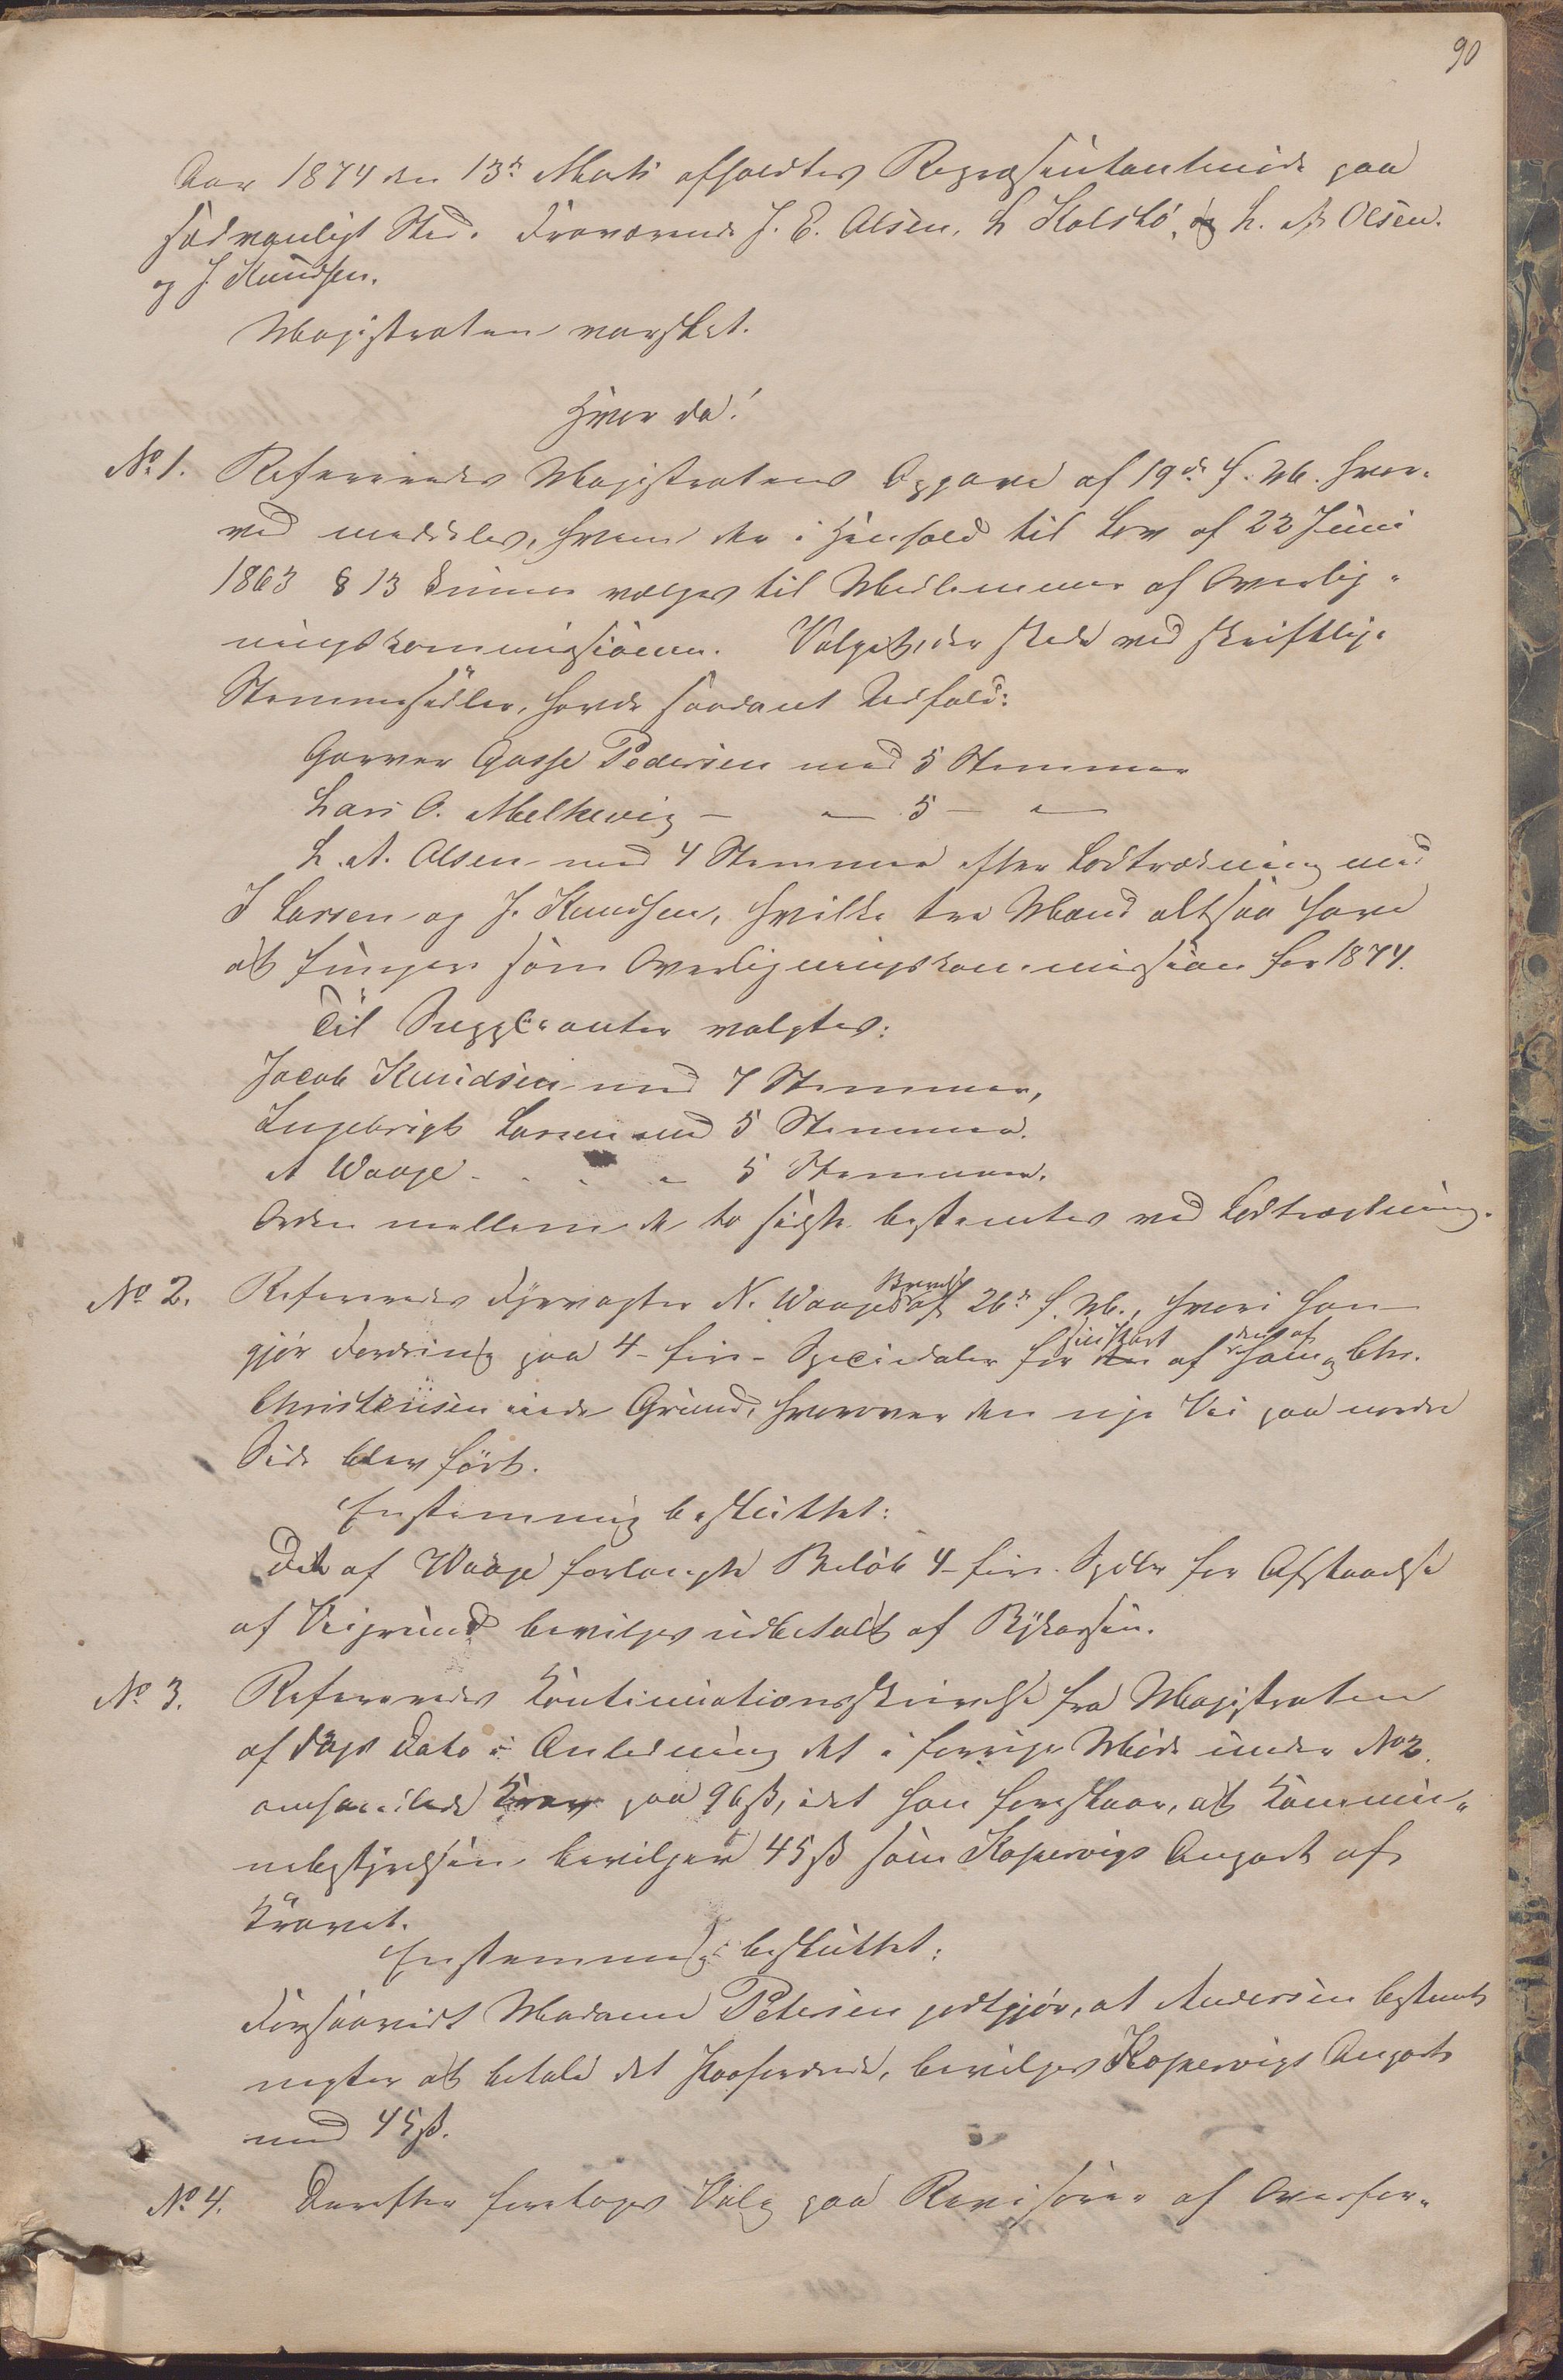 90
Aar 1874 den 13de Marts afholdtes Repræsentantmøde paa
sædvanligt Sted. Fraværende J. E. Olsen, L Kolstö, og L. A. Olsen.
og J. Knudsen.
Magistraten varslet.
Hvor da!
No 1. Refereredes Magistratens Opgave af 19de f. M. hvor-
ved meddeles, hvem der i Henhold til Lov af 22 Juni
1863 § 13 kunne vælges til Medlemmer af Overlig-
ningskommissionen. Valget, der skede ved skriftlige
Stemmesedler, havde saadant Udfald:
Garver Gasse Pedersen med 5 Stemmer
Lars O. Melkevig — — 5 — —
L. A. Olsen med 4 Stemmer efter Lodtrækning med
I Larsen og J. Knudsen, hvilke tre Mænd altsaa have
at fungere som Overligningskommission for 1874.
Til Suppleanter valgtes:
Jacob Knudsen med 7 Stemmer,
Ingebrigt Larsen med 5 Stemmer.
A Waage - . . - 5 Stemmer.
Orden mellem de to sidste bestemtes ved Lodtrækning.
No 2. Refereredes Fyrvogter N. Waages Brev af 26de f. M., hvori han
gjør Fordring paa 4 - fire - Speciedaler for sin Part den af ham og Chr.
Christensen eiede Grund, hvorover den nye Vei paa nordre
Side blev ført.
Enstemmig besluttet:
Det af Waage forlangte Beløb 4 - fire - Spdlr for Afstaaelse
af Veigrund bevilges udbetalt af Bykassen.
No 3. Refereredes Kontinuationsskrivelse fra Magistraten
af Dags Dato i Anledning det i forrige Møde under No 2.
omhandlede Krav paa 96 ß, idet han foreslaar, at Kommu-
nebestyrelsen bevilger 45 ß som Kopervigs Anpart af
Kravet.
Enstemmig besluttet:
Forsaavidt Madame Petersen godtgjør, at Andersen bestemt
negter at betale det Paafordrede, bevilges Kopervigs Anpart
med 45 ß.
No 4. Derefter foretoges Valg paa Revisorer af Overfor-